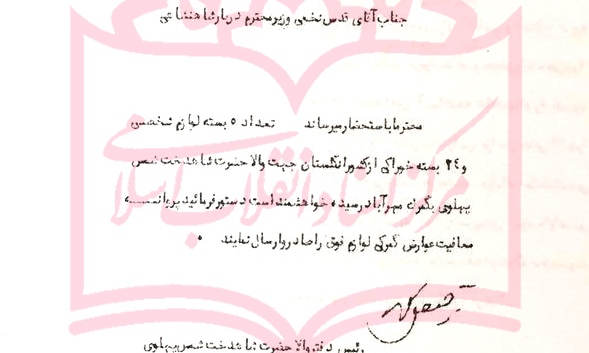 جناب آقای قدس نخعی وزیر محترم دربار شاهنشاهی
محترما باستحضار میرساند تعداد ۵ بسته لوازم شخصی
و ۲۴ بسته خوراکی از کشور انگلستان جهت والا حضرت شاهدخت شمس
پهلوی بگمرک مهرآباد رسیده خواهشمند است دستور فرمائید پروانه
معافیت عوارض گمرکی لوازم فوق را صادر و ارسال نمایند ۰
رئیس دفتر والا حضرت شاهدخت شمس پهلوی
مرکز اسناد انقلاب اسلامی